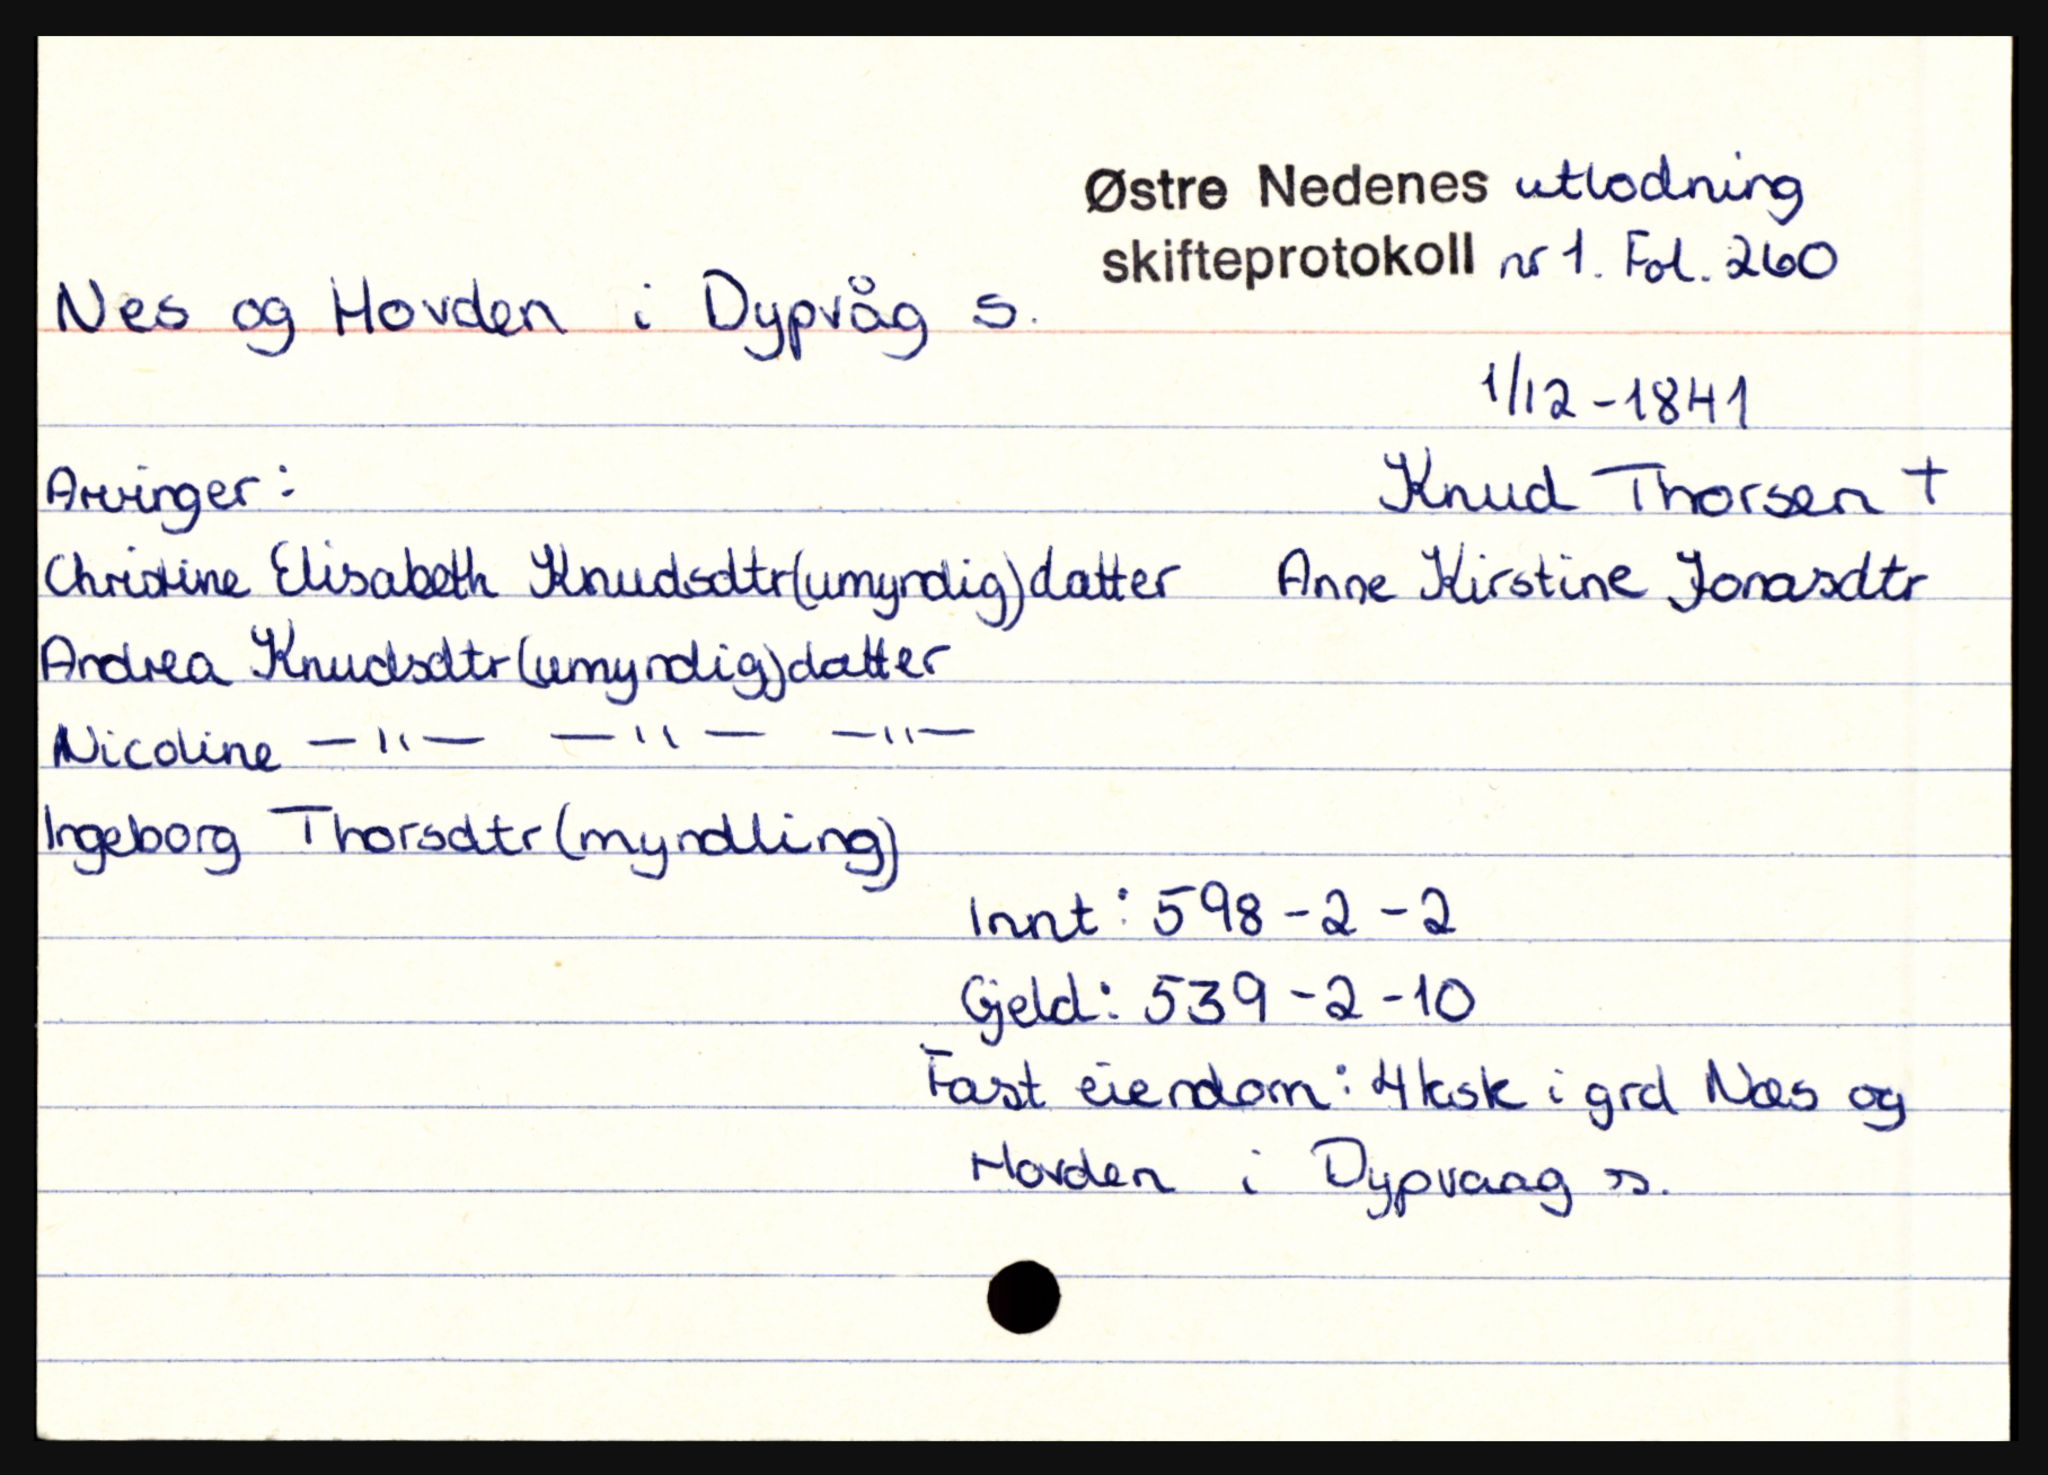 Østre Nedenes utlodning
skifteprotokoll nr 1. Fol. 260
Nes og Hovden i Dypvåg s.
1/12-1841
Arvinger: Knud Thorsen +
Christine Elisabeth Knudsdtr (umyndig) datter Anne Kirstine Jonasdtr
Andrea Knudsdtr (umyndig) datter
Nicoline —"— —"— —"—
Ingeborg Thorsdtr (myndling)
Innt: 598-2-2
Gjeld: 539-2-10
Fast eiendom: 4 ksk i grd Næs og
Hovden i Dypvaag s.